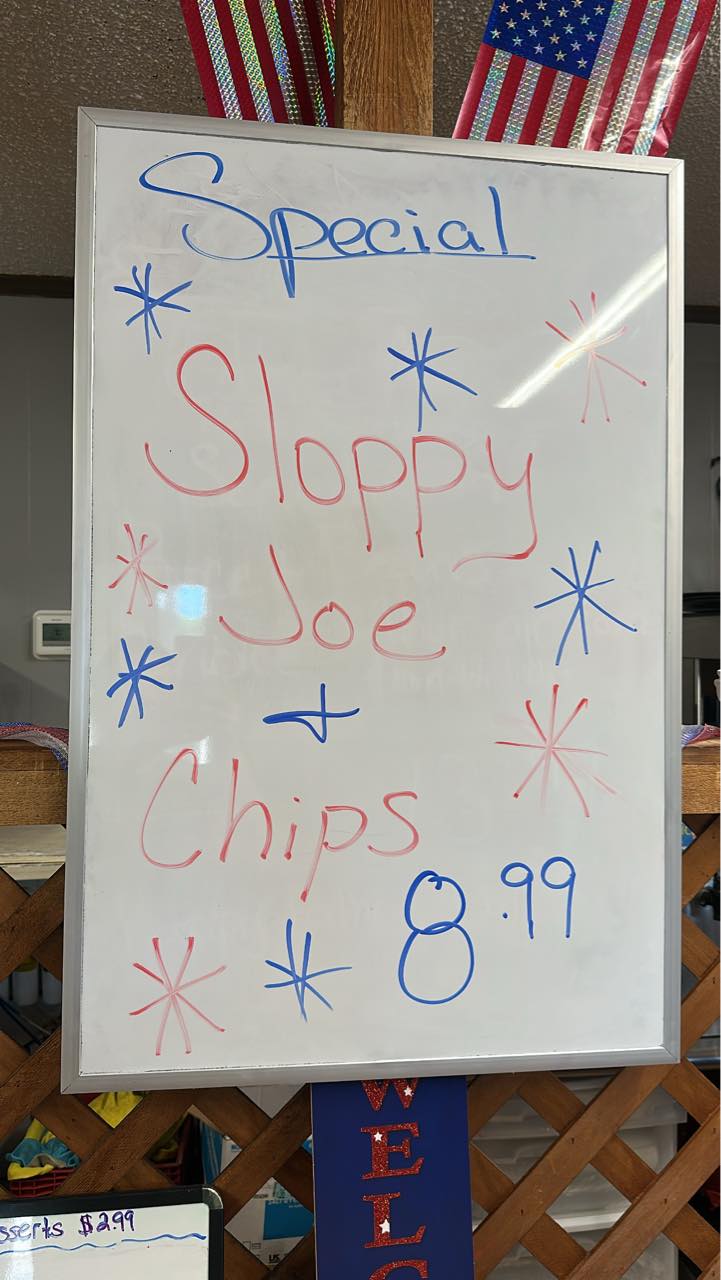 Special
Sloppy
Joe
+
Chips
8.99
WELC
sserts $2.99